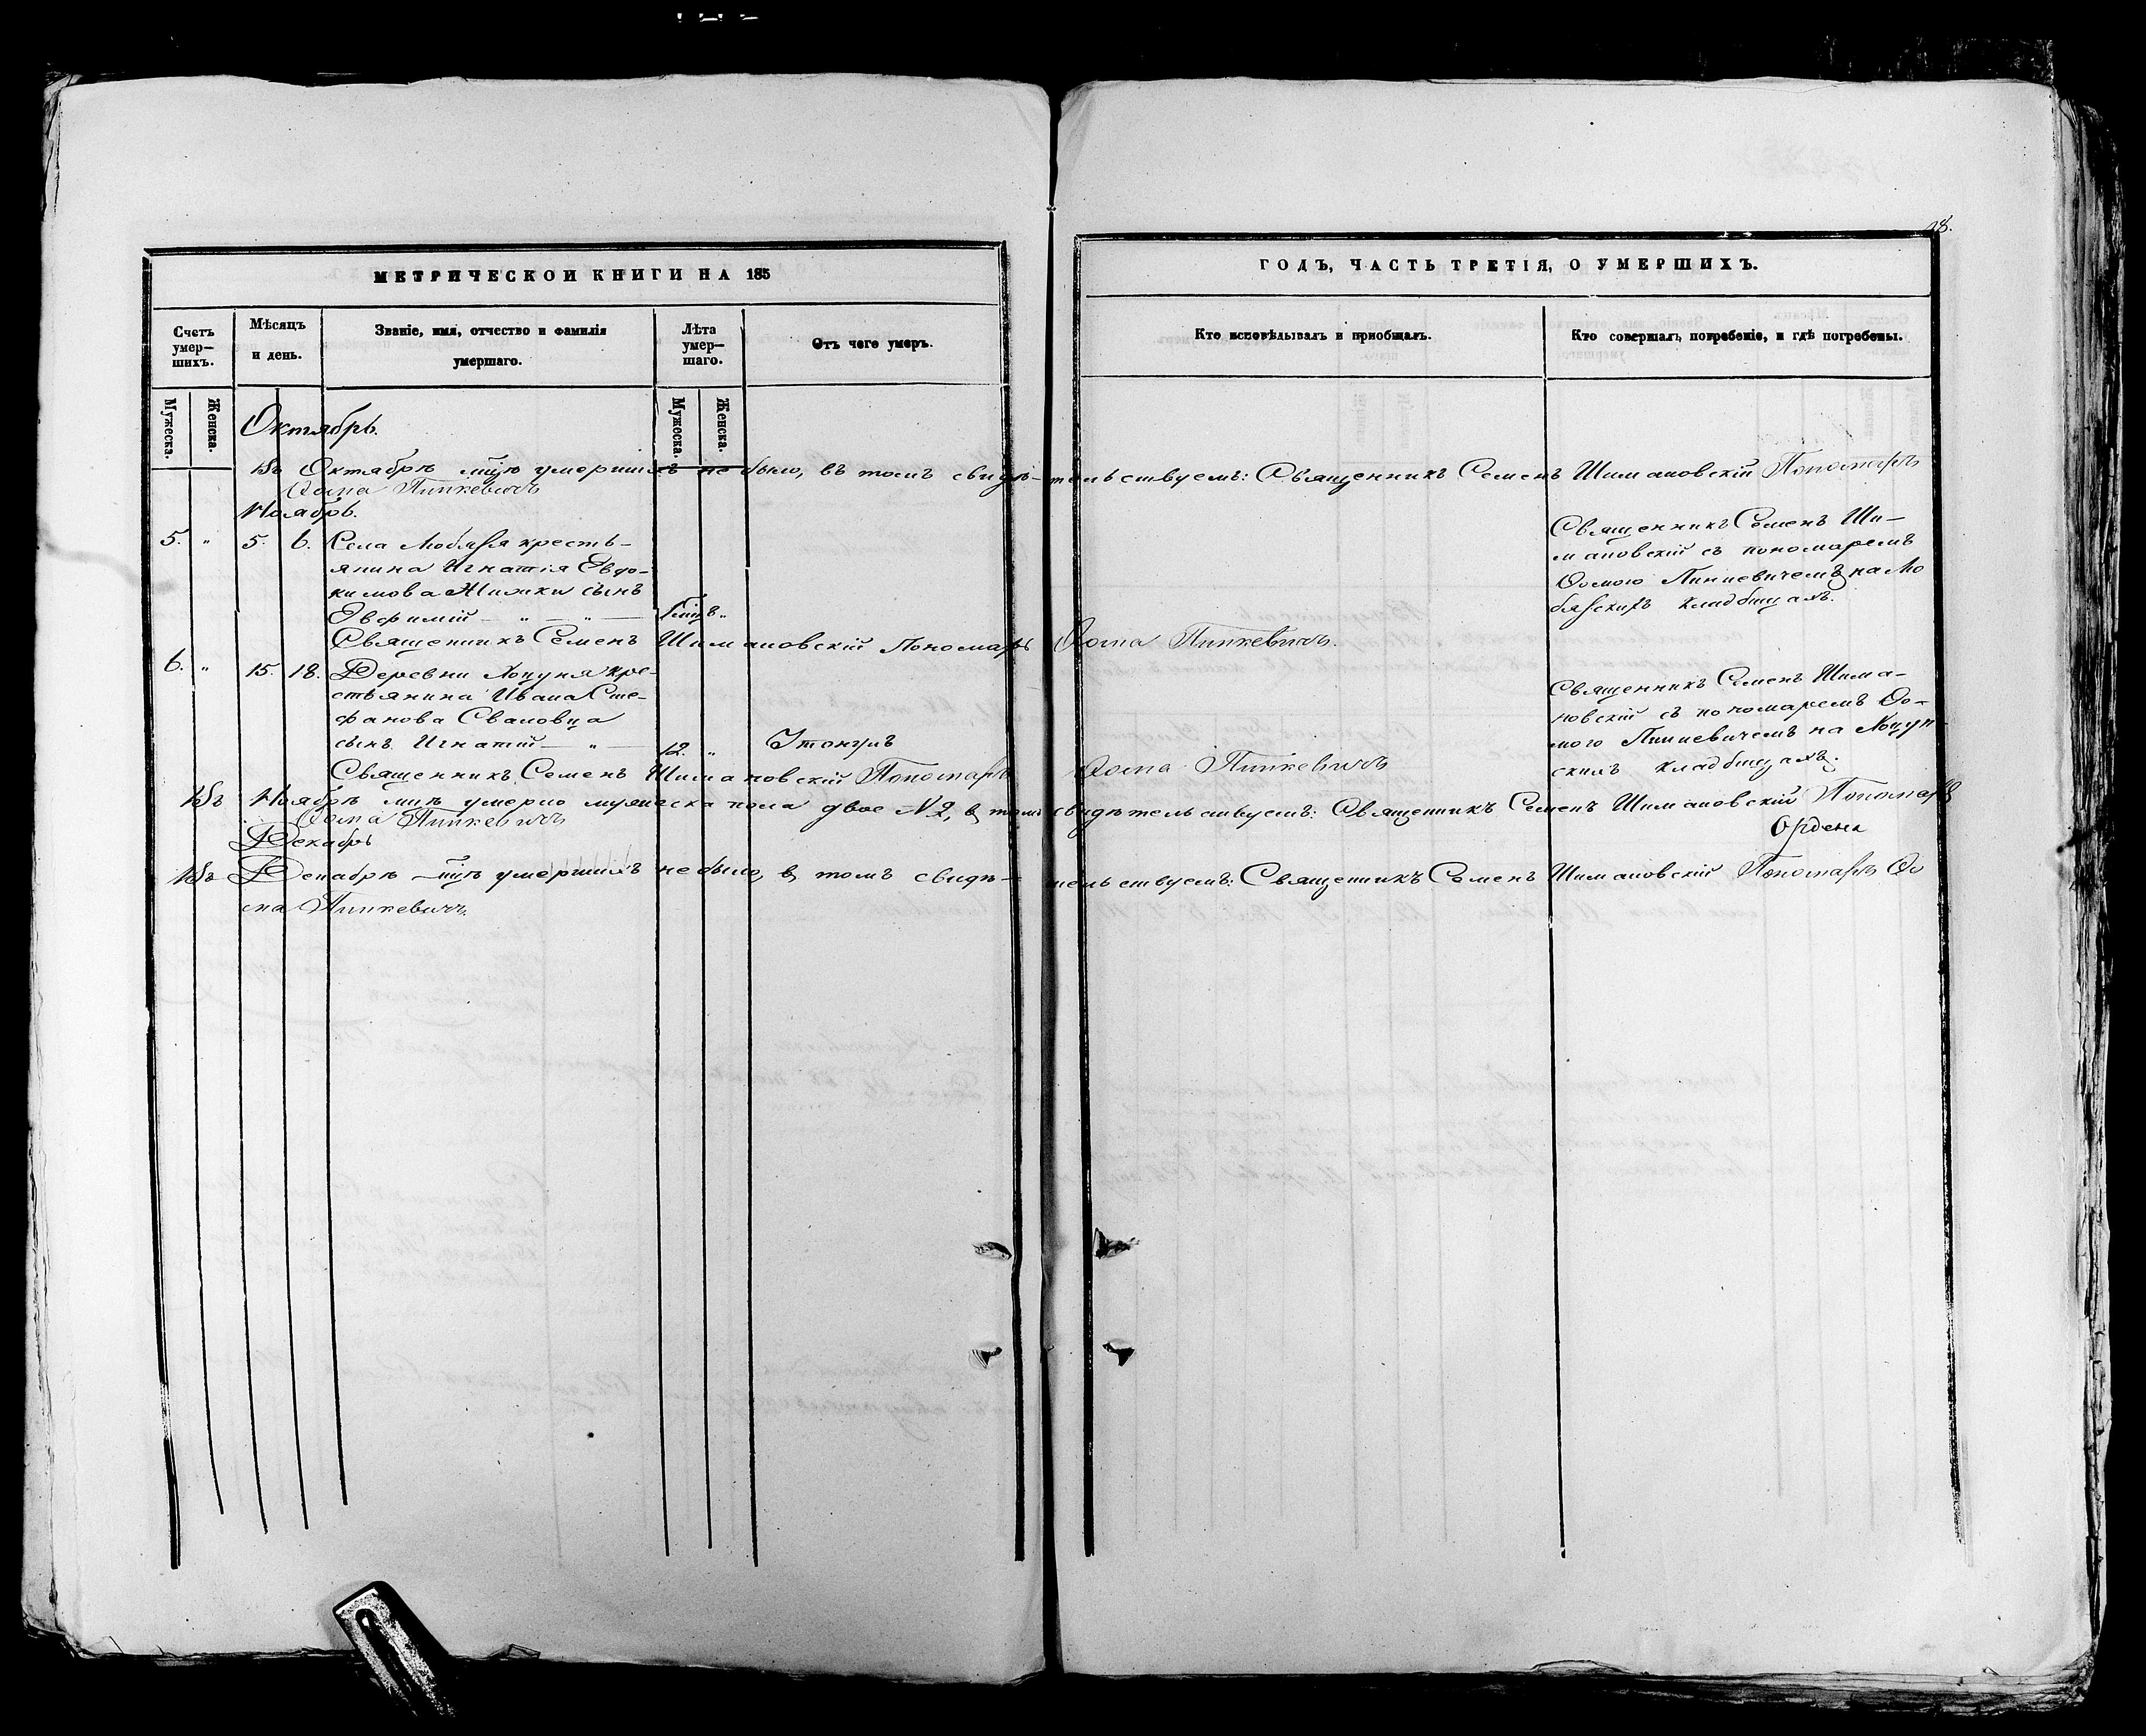 98.
МЕТРИЧЕСКОЙ КНИГИ НА 185
ГОДЪ, ЧАСТЬ ТРЕТІЯ, О УМЕРШИХЪ.
Счетъ умер—шихъ.
Мѣсяцъ и день.
Званіе, имя, отчество и фамилія умершаго.
Лѣта умер—шаго.
Отъ чего умеръ.
Кто исповѣдывалъ и пріобщалъ.
Кто совершалъ погребеніе, и гдѣ погребены.
Мужеска.
Женска.
Мужеска.
Женска.
Октябрь.
Въ Октябрѣ мцѣ умершихъ не было, въ томъ свидѣтельствуемъ: Священникъ Семенъ Шимановскій Пономарь
Ѳома Пинкевичъ
Ноябрь.
5. " 5. 6. Села Любязя кресть—
янина Игнатія Евдо—
кимова Жилки сынъ
Евфимій — " — " —
Священникъ Семенъ Ши—
мановскій съ пономаремъ
Ѳомою Пинкевичемъ на Лю
бязскихъ кладбищахъ.
Священникъ Семенъ Шимановскій Пономарь Ѳома Пинкевичъ.
6. " 15. 18. Деревни Хоцуня кре—
стьянина Ивана Сте—
фанова Сваловца
сынъ Игнатій — " — 12. "
Священникъ Семенъ Шима—
новскій съ пономаремъ Ѳо—
мою Пинкевичемъ на Хоцун—
скихъ кладбищахъ.
Священникъ Семенъ Шимановскій Пономарь Ѳома Пинкевичъ
Въ Ноябрѣ мцѣ умерло мужеска пола двое № 2, въ томъ свидѣтельствуемъ: Священникъ Семенъ Шимановскій Пономарь
Ѳома Пинкевичъ
Декабрь
Въ Декабрѣ мцѣ умершихъ не было, въ томъ свидѣтельствуемъ: Священникъ Семенъ Шимановскій Пономарь Ѳо
ма Пинкевичъ.